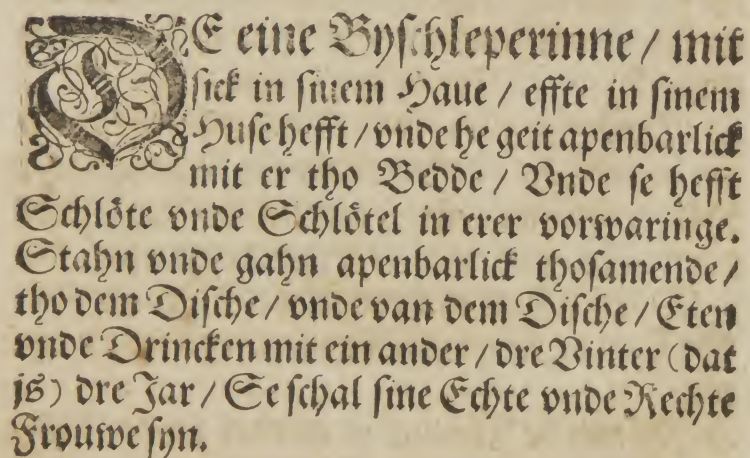 DE eine Byschleperinne / mit
sick in sinem Haue / effte in sinem
Huse hefft / vnde he geit apenbarlick
mit er tho Bedde / Vnde se hefft
Schlöte vnde Schlötel in erer vorwaringe.
Stahn vnde gahn apenbarlick thosamende /
tho dem Dische / vnde van dem Dische / Eten
vnde Drincken mit ein ander / dre Vinter (dat
is) dre Jar / Se schal sine Echte vnde Rechte
Frouwe syn.